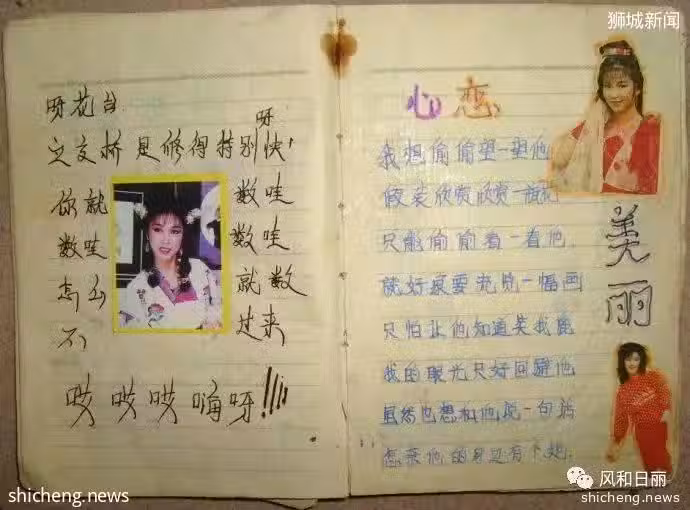 狮城新闻
呀花台
呀
立交桥是修得特别快,
你就 数哇
数哇 数哇
怎么 就数
不 过来
哎哎哎嗨呀!!!!
心恋
我想偷偷望一望他
假装欣赏欣赏一瓶花
只能偷偷看一看他
就好象要浏览一幅画
只怕让他知道笑我傻
我的眼光只好回避他
虽然也想和他说一句话
怎奈他的身边有个她.
美丽
风和日丽
shicheng.news
shicheng.news